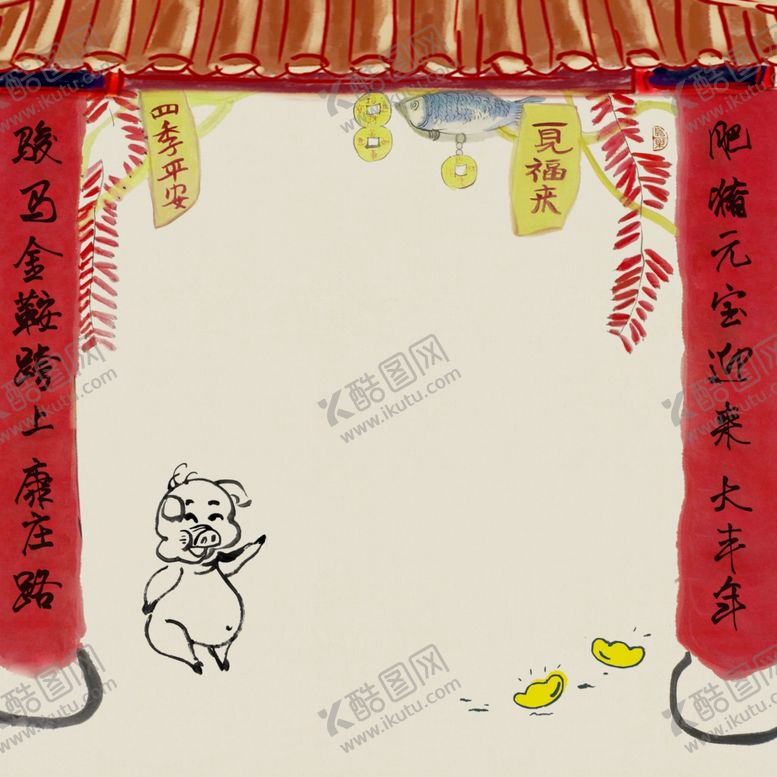 骏马金鞍跨上康庄路
四季平安
一見福来
肥猪元宝迎来大丰年
酷图网
www.ikutu.com
酷图网
www.ikutu.com
酷图网
www.ikutu.com
酷图网
www.ikutu.com
酷图网
www.ikutu.com
酷图网
www.ikutu.com
酷图网
www.ikutu.com
酷图网
www.ikutu.com
酷图网
www.ikutu.com